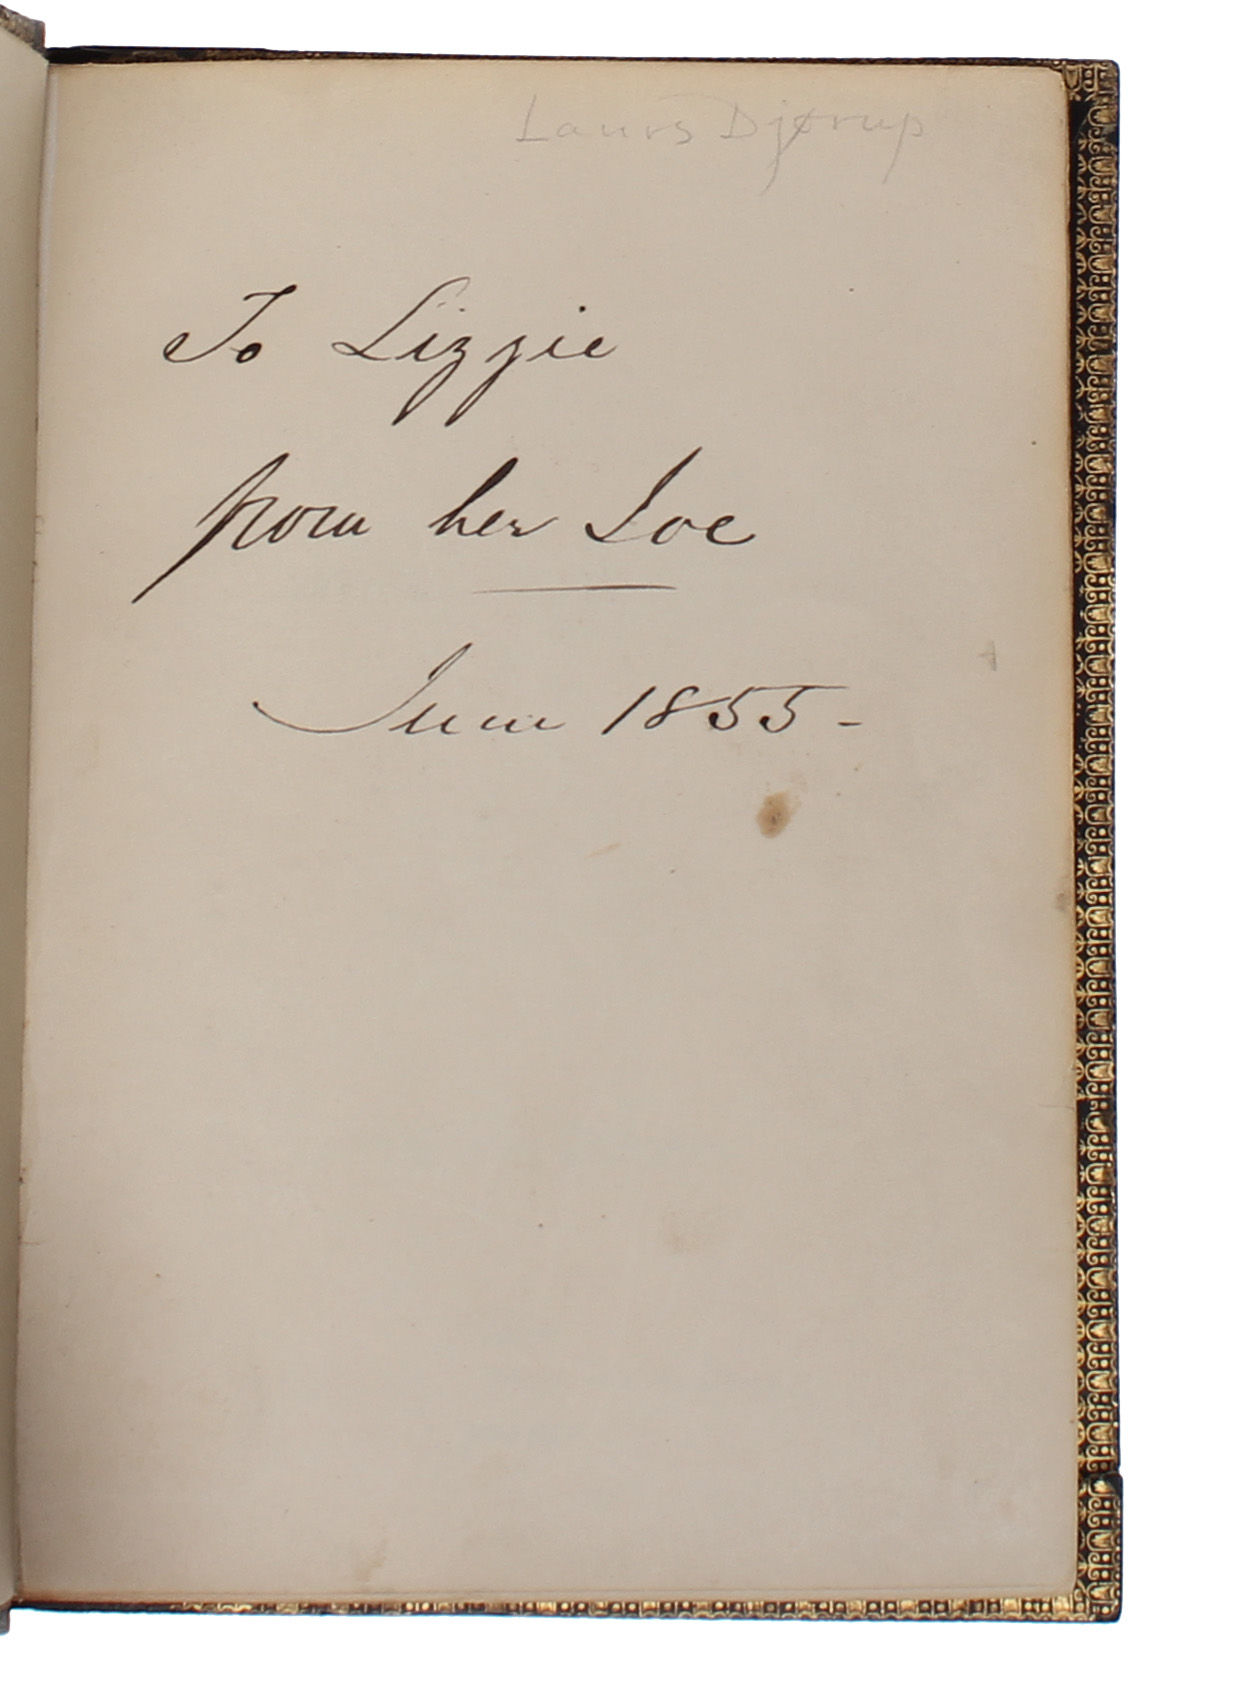 Laurs Djørup
To Lizzie
from her Joe
June 1855-